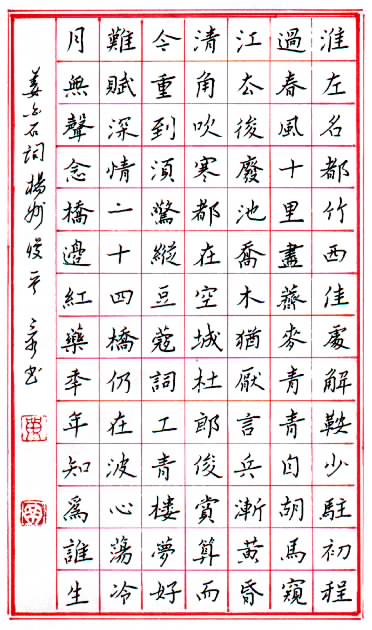 淮左名都竹西佳處解鞍少駐初程
過春風十里盡薺麥青青自胡馬窺
江去後廢池喬木猶厭言兵漸黃昏
清角吹寒都在空城杜郎俊賞算而
今重到須驚縱豆蔻詞工青楼夢好
難賦深情二十四橋仍在波心蕩冷
月無聲念橋邊紅藥秊年知爲誰生
姜白石詞揚州慢